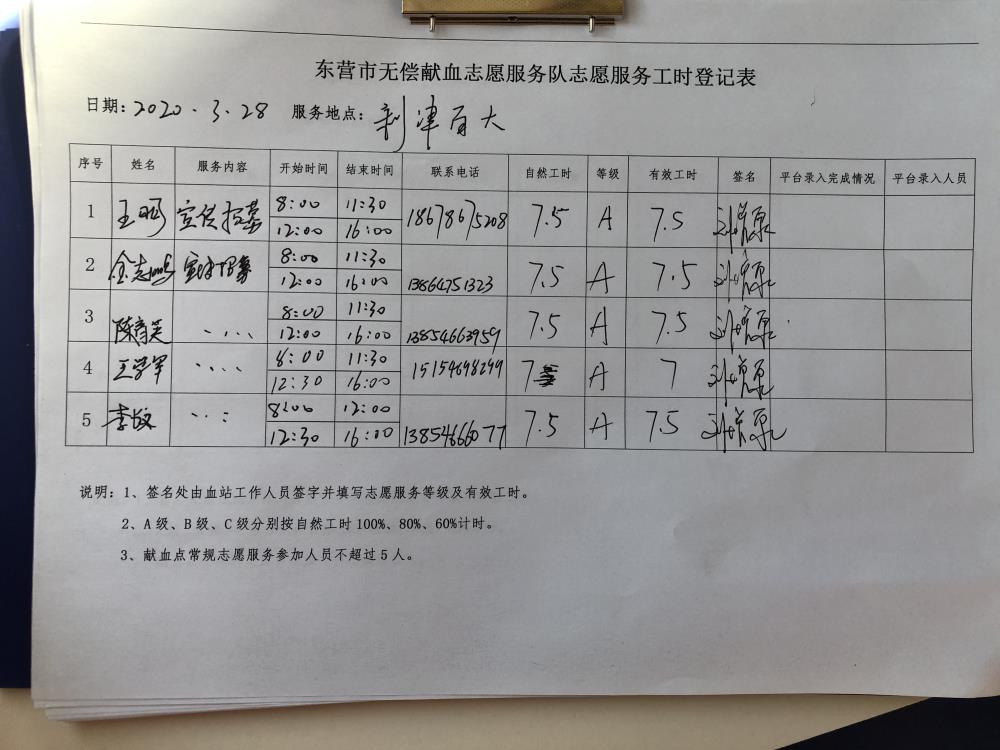 东营市无偿献血志愿服务队志愿服务工时登记表
日期：2020.3.28 服务地点：利津百大
序号 姓名 服务内容 开始时间 结束时间 联系电话 自然工时 等级 有效工时 签名 平台录入完成情况 平台录入人员
1 王明 宣传招募 8:00 11:30 18678675208 7.5 A 7.5
12:00 16:00
2 宣传招募 8:00 11:30 13864751323 7.5 A 7.5
12:00 16:00
3 8:00 11:30 13854663959 7.5 A 7.5
12:00 16:00
4 王学军 8:00 11:30 15154698299 7 A 7
12:30 16:00
5 李政 8:00 12:00 13854666077 7.5 A 7.5
12:30 16:00
说明：1、签名处由血站工作人员签字并填写志愿服务等级及有效工时。
2、A 级、B 级、C 级分别按自然工时 100%、80%、60%计时。
3、献血点常规志愿服务参加人员不超过 5 人。